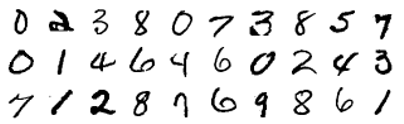 0 2 3 8 0 7 3 8 5 7
0 1 4 6 4 6 0 2 4 3
7 1 2 8 7 6 9 8 6 1